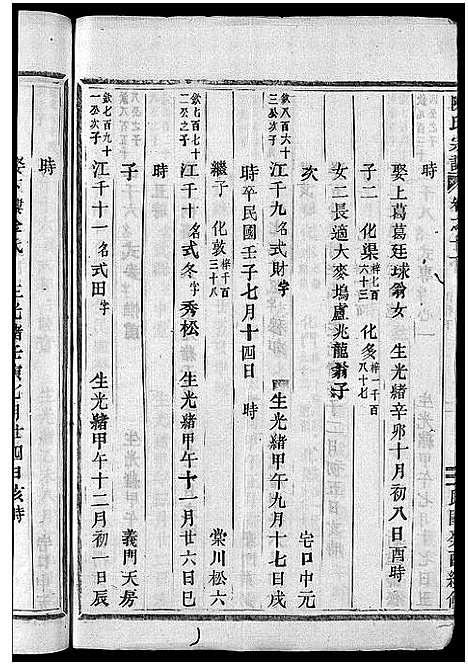 時
娶上葛葛廷球翁女　生光緒辛卯十月初八日酉時
子二　化渠梓七百六十三　化多梓一千百八十七
女二長適大麥塢盧兆龍翁子
次　宅口中元
欽八百六十三公次子　江千九名式財字　生光緒甲午九月十七日戌
時卒民國壬子七月十四日　時
繼子　化敦梓千百三十八　棠川松六
欽七百六十二公之子　江千十名式冬字秀松　生光緒甲午十一月廿六日巳
時
子　義門天房
欽七百九十一公次子　江千十一名式田字　生光緒甲午十二月初一日辰
時
生光緒壬寅七月廿四日亥時